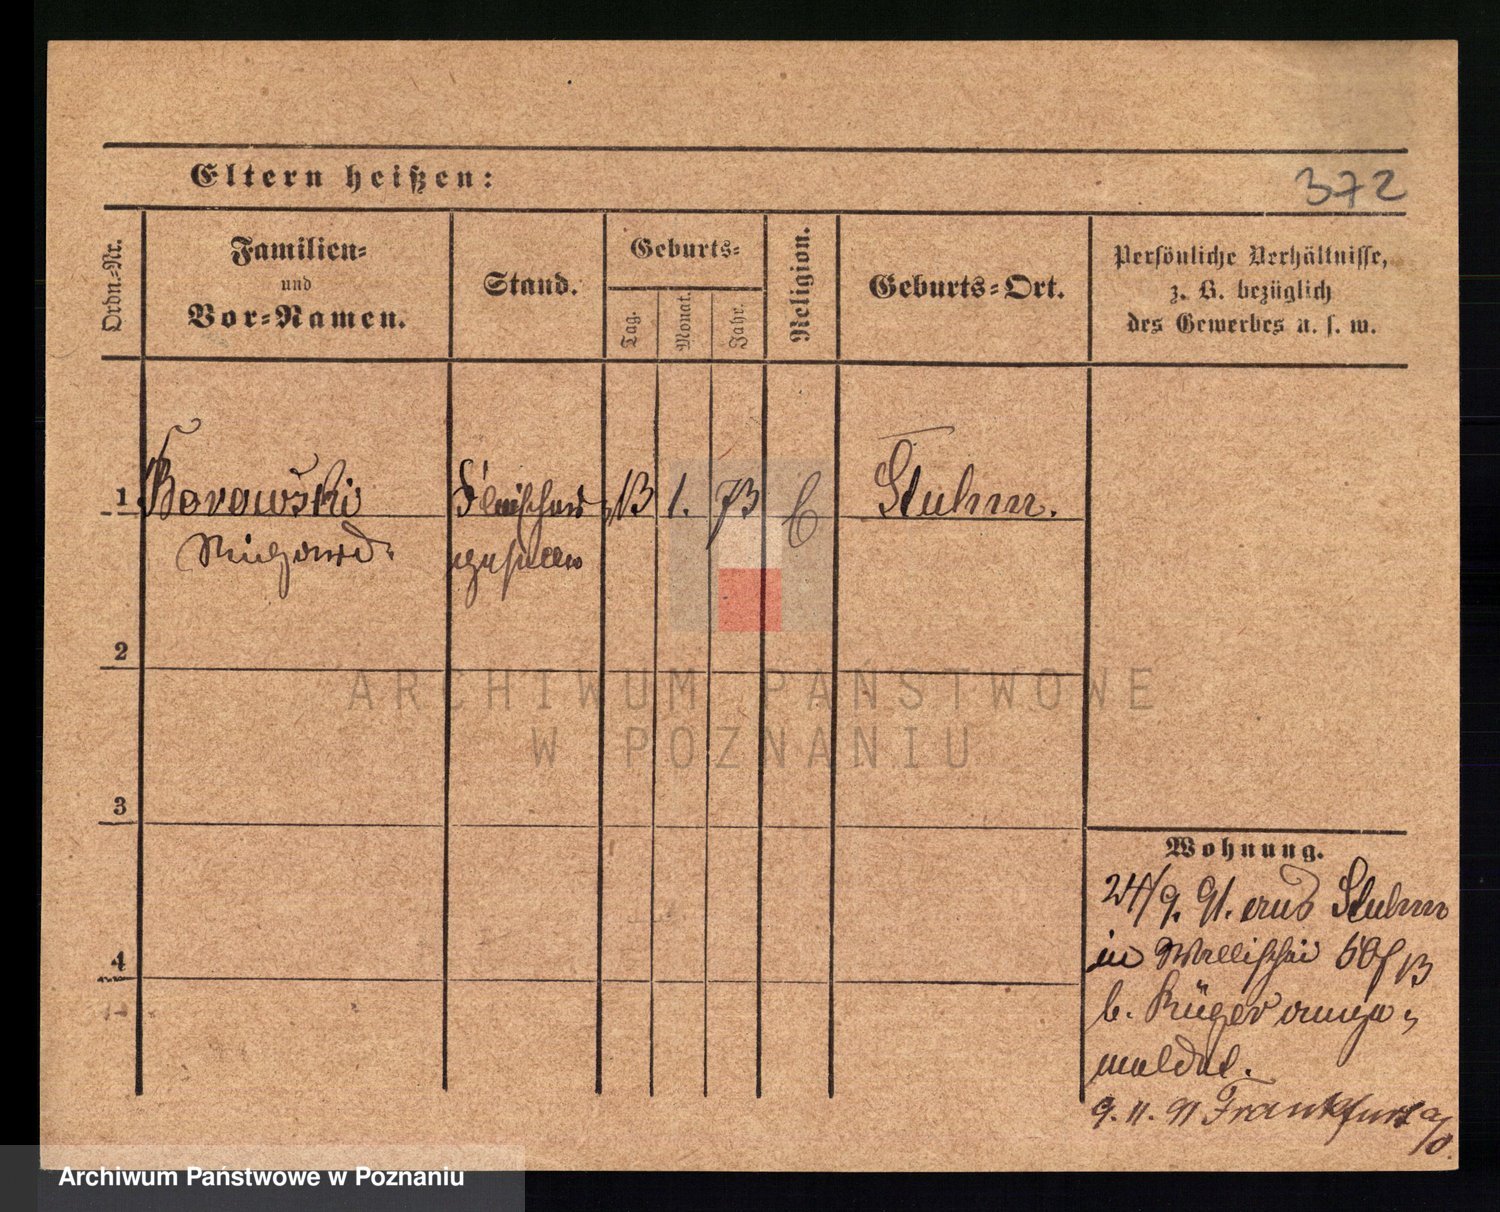 Eltern heißen:
372
Ordn.-Nr.
Familien-
und
Vor-Namen.
Stand.
Geburts-
Tag.
Monat.
Jahr.
Religion.
Geburts-Ort.
Persönliche Verhältnisse,
z. B. bezüglich
des Gewerbes u. s. w.
1 Borowski Fleischer- 13 1. 73 C Stuhm.
Richard. geselle
2
3
4
Wohnung.
24/9. 91. aus Stuhm
in Wallischei
b. Krüger ange-
meldet.
9. 11. 91 Frankfurt a/O.
ARCHIWUM PAŃSTWOWE
W POZNANIU
Archiwum Państwowe w Poznaniu